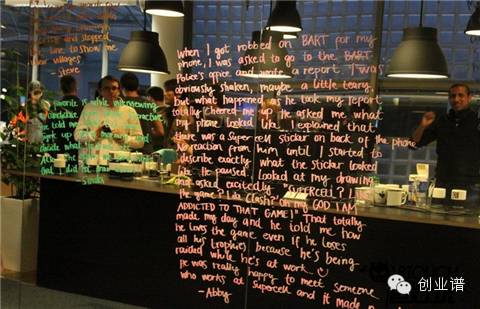 and stopped
line to show me
villages"
- Steve
favorite is while interviewing
candidate
he told me
up
decide what
that I did
When I got robbed on BART for my
phone, I was asked to go to the BART
Police's office and write a report. I was
obviously shaken, maybe a little teary.
but what happened as he took my report
totally cheered me up. he asked me what
my phone looked like. I explained that
there was a supercell sticker on back of the phone
No reaction from him until I started to
describe exactly what the sticker looked
like. He paused. Looked at my drawing
and asked excitedly "SUPERCELL?! I
the game? Like Clash? Oh my GOD I AM
ADDICTED TO THAT GAME!" That totally
made my day and he told me how
he loves the game even if he loses
all his trophies because he's being
raided while he's at work.
He was really happy to meet someone
who works at supercell and it made
- Abby
创业谱